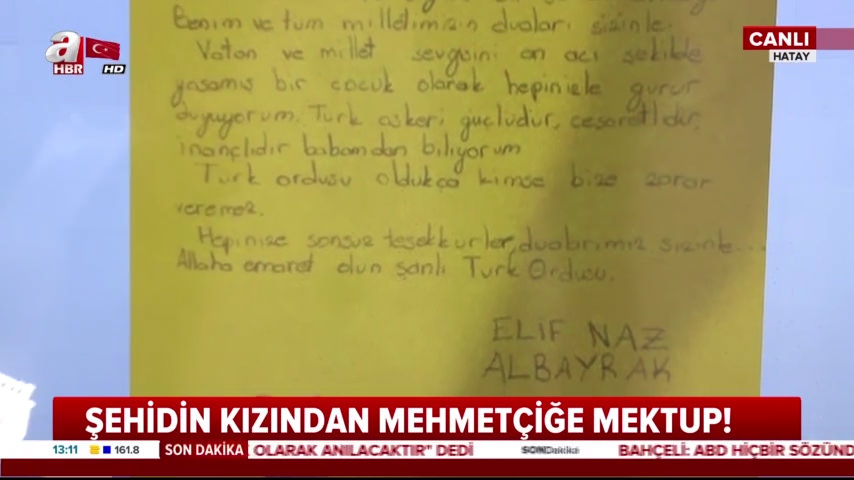 Benim ve tüm milletimizin duaları sizinle.
Vatan ve millet sevgisini en acı şekilde
yaşamış bir çocuk olarak hepinizle gurur
duyuyorum. Türk askeri güçlüdür, cesaretlidir,
inançlıdır babamdan biliyorum
Türk ordusu oldukça kimse bize zarar
veremez.
Hepinize sonsuz teşekkürler, dualarımız sizinle...
Allaha emanet olun şanlı Türk Ordusu.
ELİF NAZ
ALBAYRAK
a
HBR
HD
CANLI
HATAY
ŞEHİDİN KIZINDAN MEHMETÇİĞE MEKTUP!
13:11
161.8
SON DAKİKA
OLARAK ANILACAKTIR" DEDİ
SON Dakika
BAHÇELİ: ABD HİÇBİR SÖZÜND